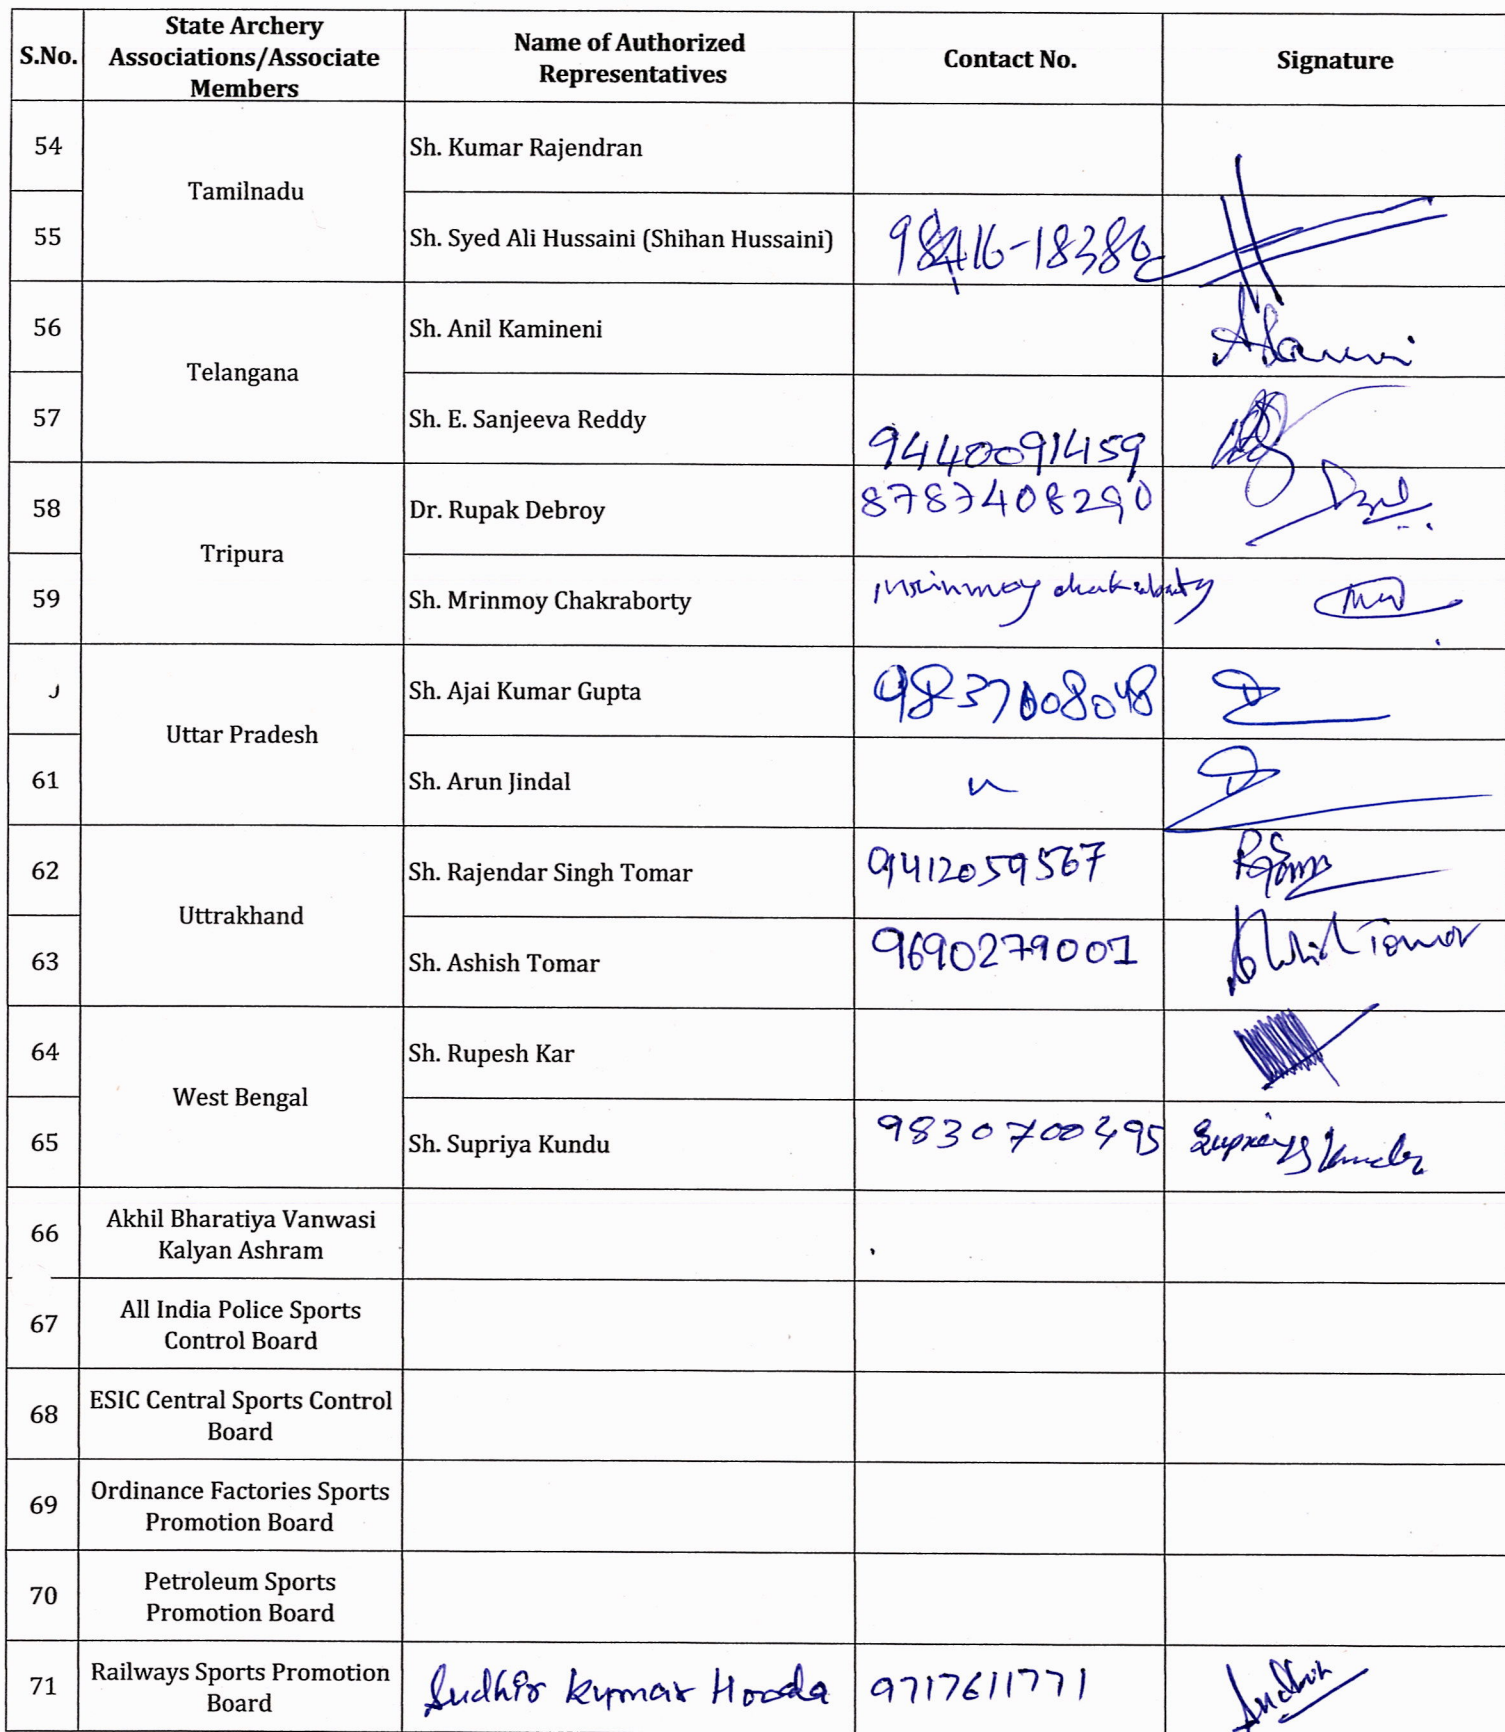 S.No.
State Archery
Associations/Associate
Members
Name of Authorized
Representatives
Contact No.
Signature
54
Tamilnadu
Sh. Kumar Rajendran
55
Sh. Syed Ali Hussaini (Shihan Hussaini)
98416-18380
56
Telangana
Sh. Anil Kamineni
57
Sh. E. Sanjeeva Reddy
9440091459
58
Tripura
Dr. Rupak Debroy
8787408290
59
Sh. Mrinmoy Chakraborty
Mrinmoy chakraborty
Uttar Pradesh
Sh. Ajai Kumar Gupta
9837008048
61
Sh. Arun Jindal
62
Uttrakhand
Sh. Rajendar Singh Tomar
9412059567
63
Sh. Ashish Tomar
9690279001
Ashish Tomar
64
West Bengal
Sh. Rupesh Kar
65
Sh. Supriya Kundu
9830700495
Supriya Kundu
66
Akhil Bharatiya Vanwasi
Kalyan Ashram
67
All India Police Sports
Control Board
68
ESIC Central Sports Control
Board
69
Ordinance Factories Sports
Promotion Board
70
Petroleum Sports
Promotion Board
71
Railways Sports Promotion
Board
Sudhir Kumar Hooda
9717611771
Sudhir